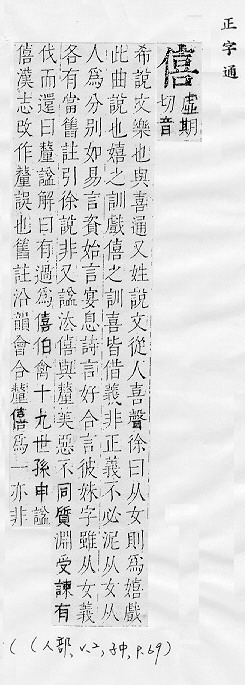 正字通
僖
虛期
切音
希說文樂也與喜通又姓說文從人喜聲徐曰从女則爲嬉戲
此曲說也嬉之訓戲僖之訓喜皆借義非正義不必泥从女从
人爲分别如易言資始言宴息詩言好合言彼姝字雖从女義
各有當舊註引徐說非又諡法僖與釐美惡不同質淵受諫有
伐而還曰釐諡解曰有過爲僖伯禽十九世孫申諡
僖漢志改作釐誤也舊註沿韻會合釐僖爲一亦非
( (人部, v.2, 子中, p.69)